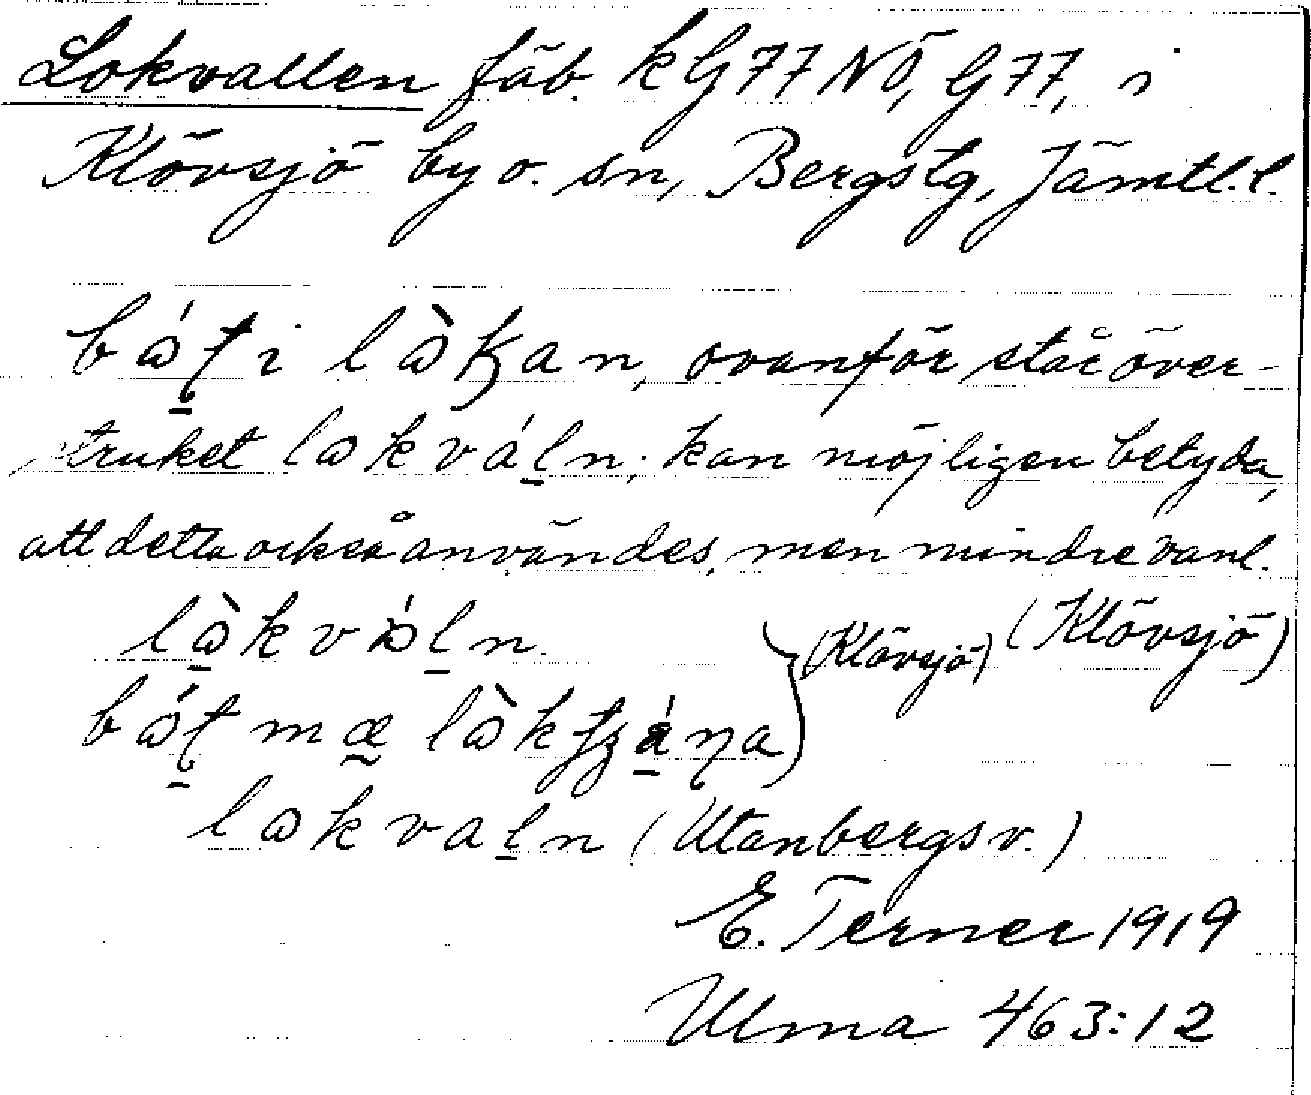 Lokvallen fäb. kG77NÖ, G77, i
Klövsjö by o. sn, Bergstg, Jämtl.l.
ovanför står över-
struket lɷkváḻn; kan möjligen betyda,
att detta också användes, men mindre vanl.
(Klövsjö) (Klövsjö)
lɷkvaḻn (Utanbergsv.)
E. Terner 1919
Ulma 463:12